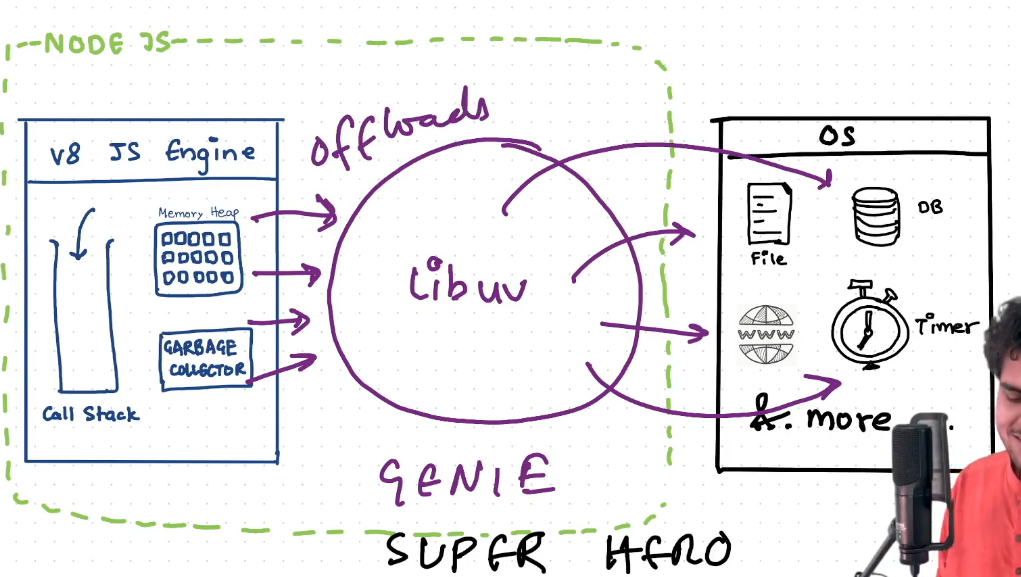 NODE JS
V8 JS Engine
Memory Heap
GARBAGE
COLLECTOR
Call Stack
Offloads
Libuv
GENIE
SUPER HERO
OS
File
DB
WWW
Timer
&. more...